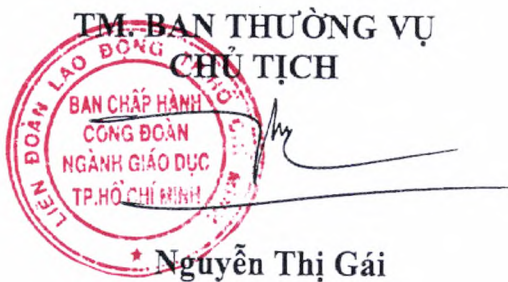 TM. BAN THƯỜNG VỤ
CHỦ TỊCH
LIÊN ĐOÀN LAO ĐỘNG
BAN CHẤP HÀNH
CÔNG ĐOÀN
NGÀNH GIÁO DỤC
TP.HỒ CHÍ MINH
Nguyễn Thị Gái